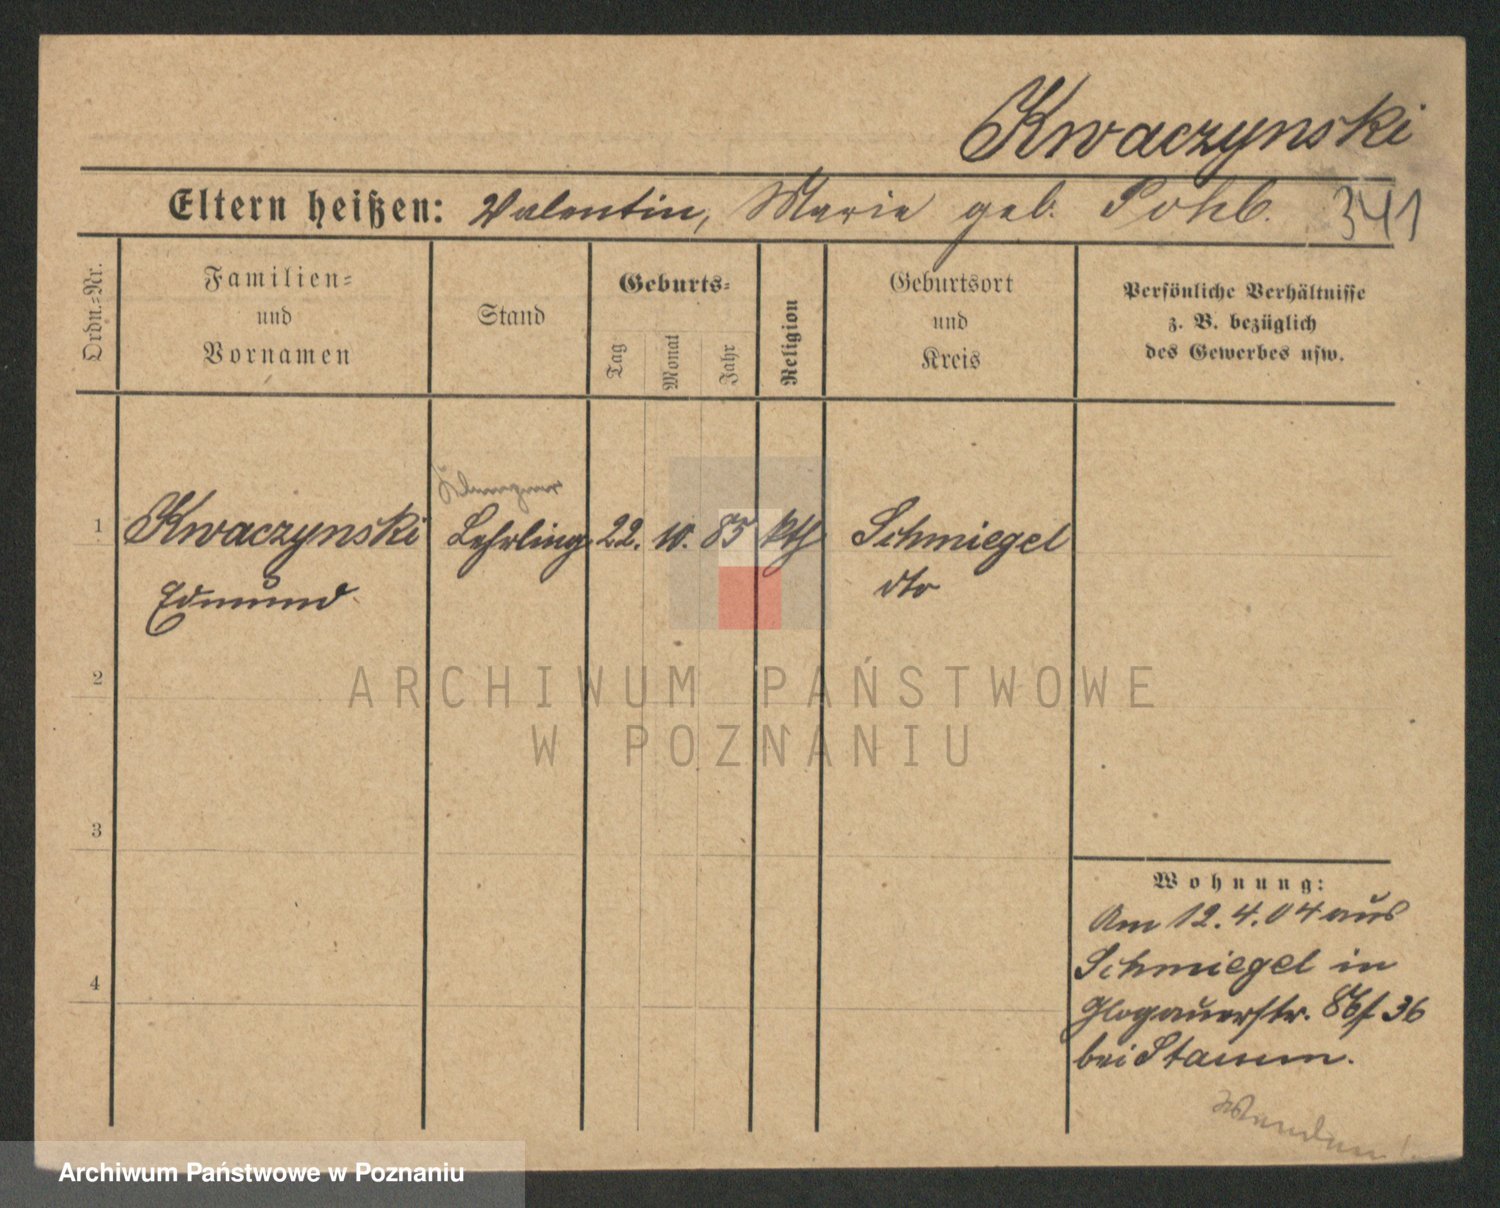 Kwaczynski
Eltern heißen: Valentin, Marie geb. Pohl. 341
Ordn.=Nr.
Familien=
und
Vornamen
Stand
Geburts=
Tag
Monat
Jahr
Religion
Geburtsort
und
Kreis
Persönliche Verhältnisse
z. B. bezüglich
des Gewerbes usw.
1 Kwaczynski Lehrling 22. 10. 85 kth Schmiegel
Edmund dto
2
3
4
Wohnung:
Am 12.4.04 aus
Schmiegel in
Glogauerstr. 86/ 36
bei Stamm.
Wenden!
ARCHIWUM PAŃSTWOWE
W POZNANIU
Archiwum Państwowe w Poznaniu